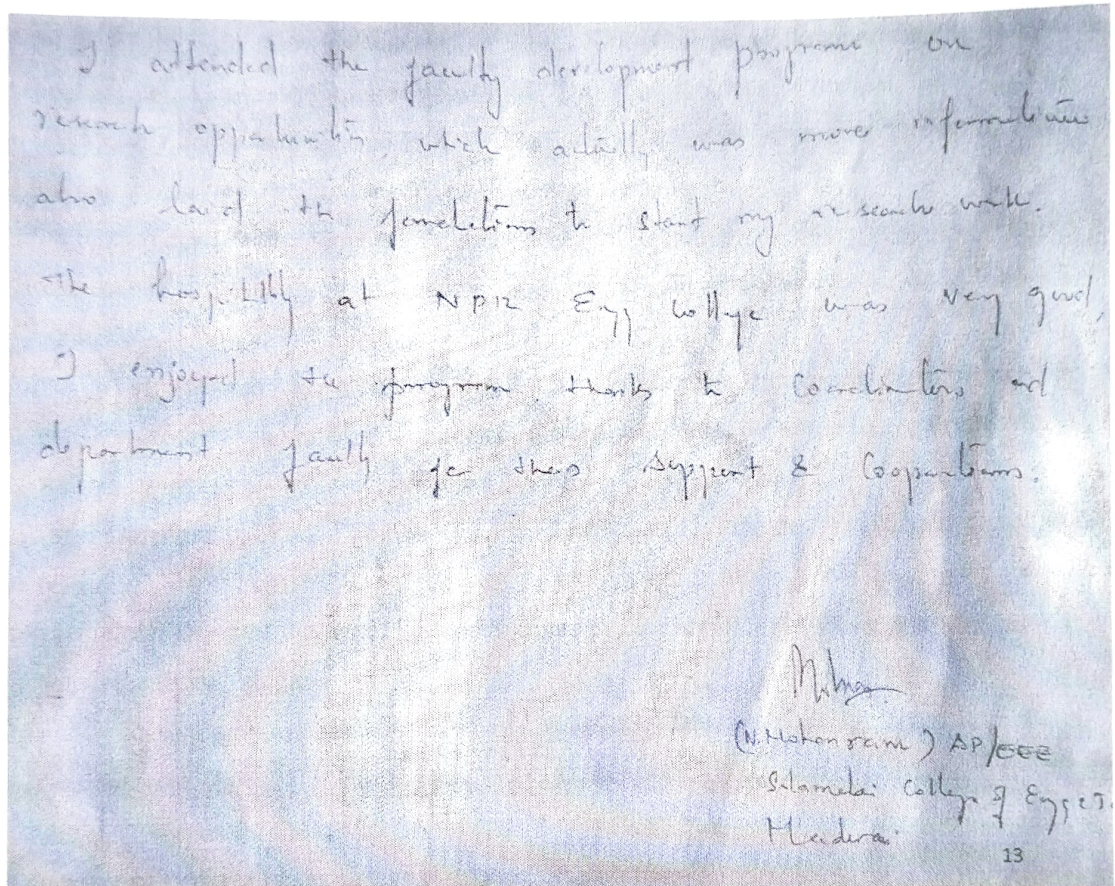 I attended the faculty development programe on
research oppurtunities which actually was more informative
also laid the foundations to start my research work.
The hospitality at NPR Engg College was very good,
I enjoyed the program thanks to Coordinators and
department faculty for their Support & Cooperations.
(N. Mohanram) AP/EEE
College of Engg & T.
Madurai
13